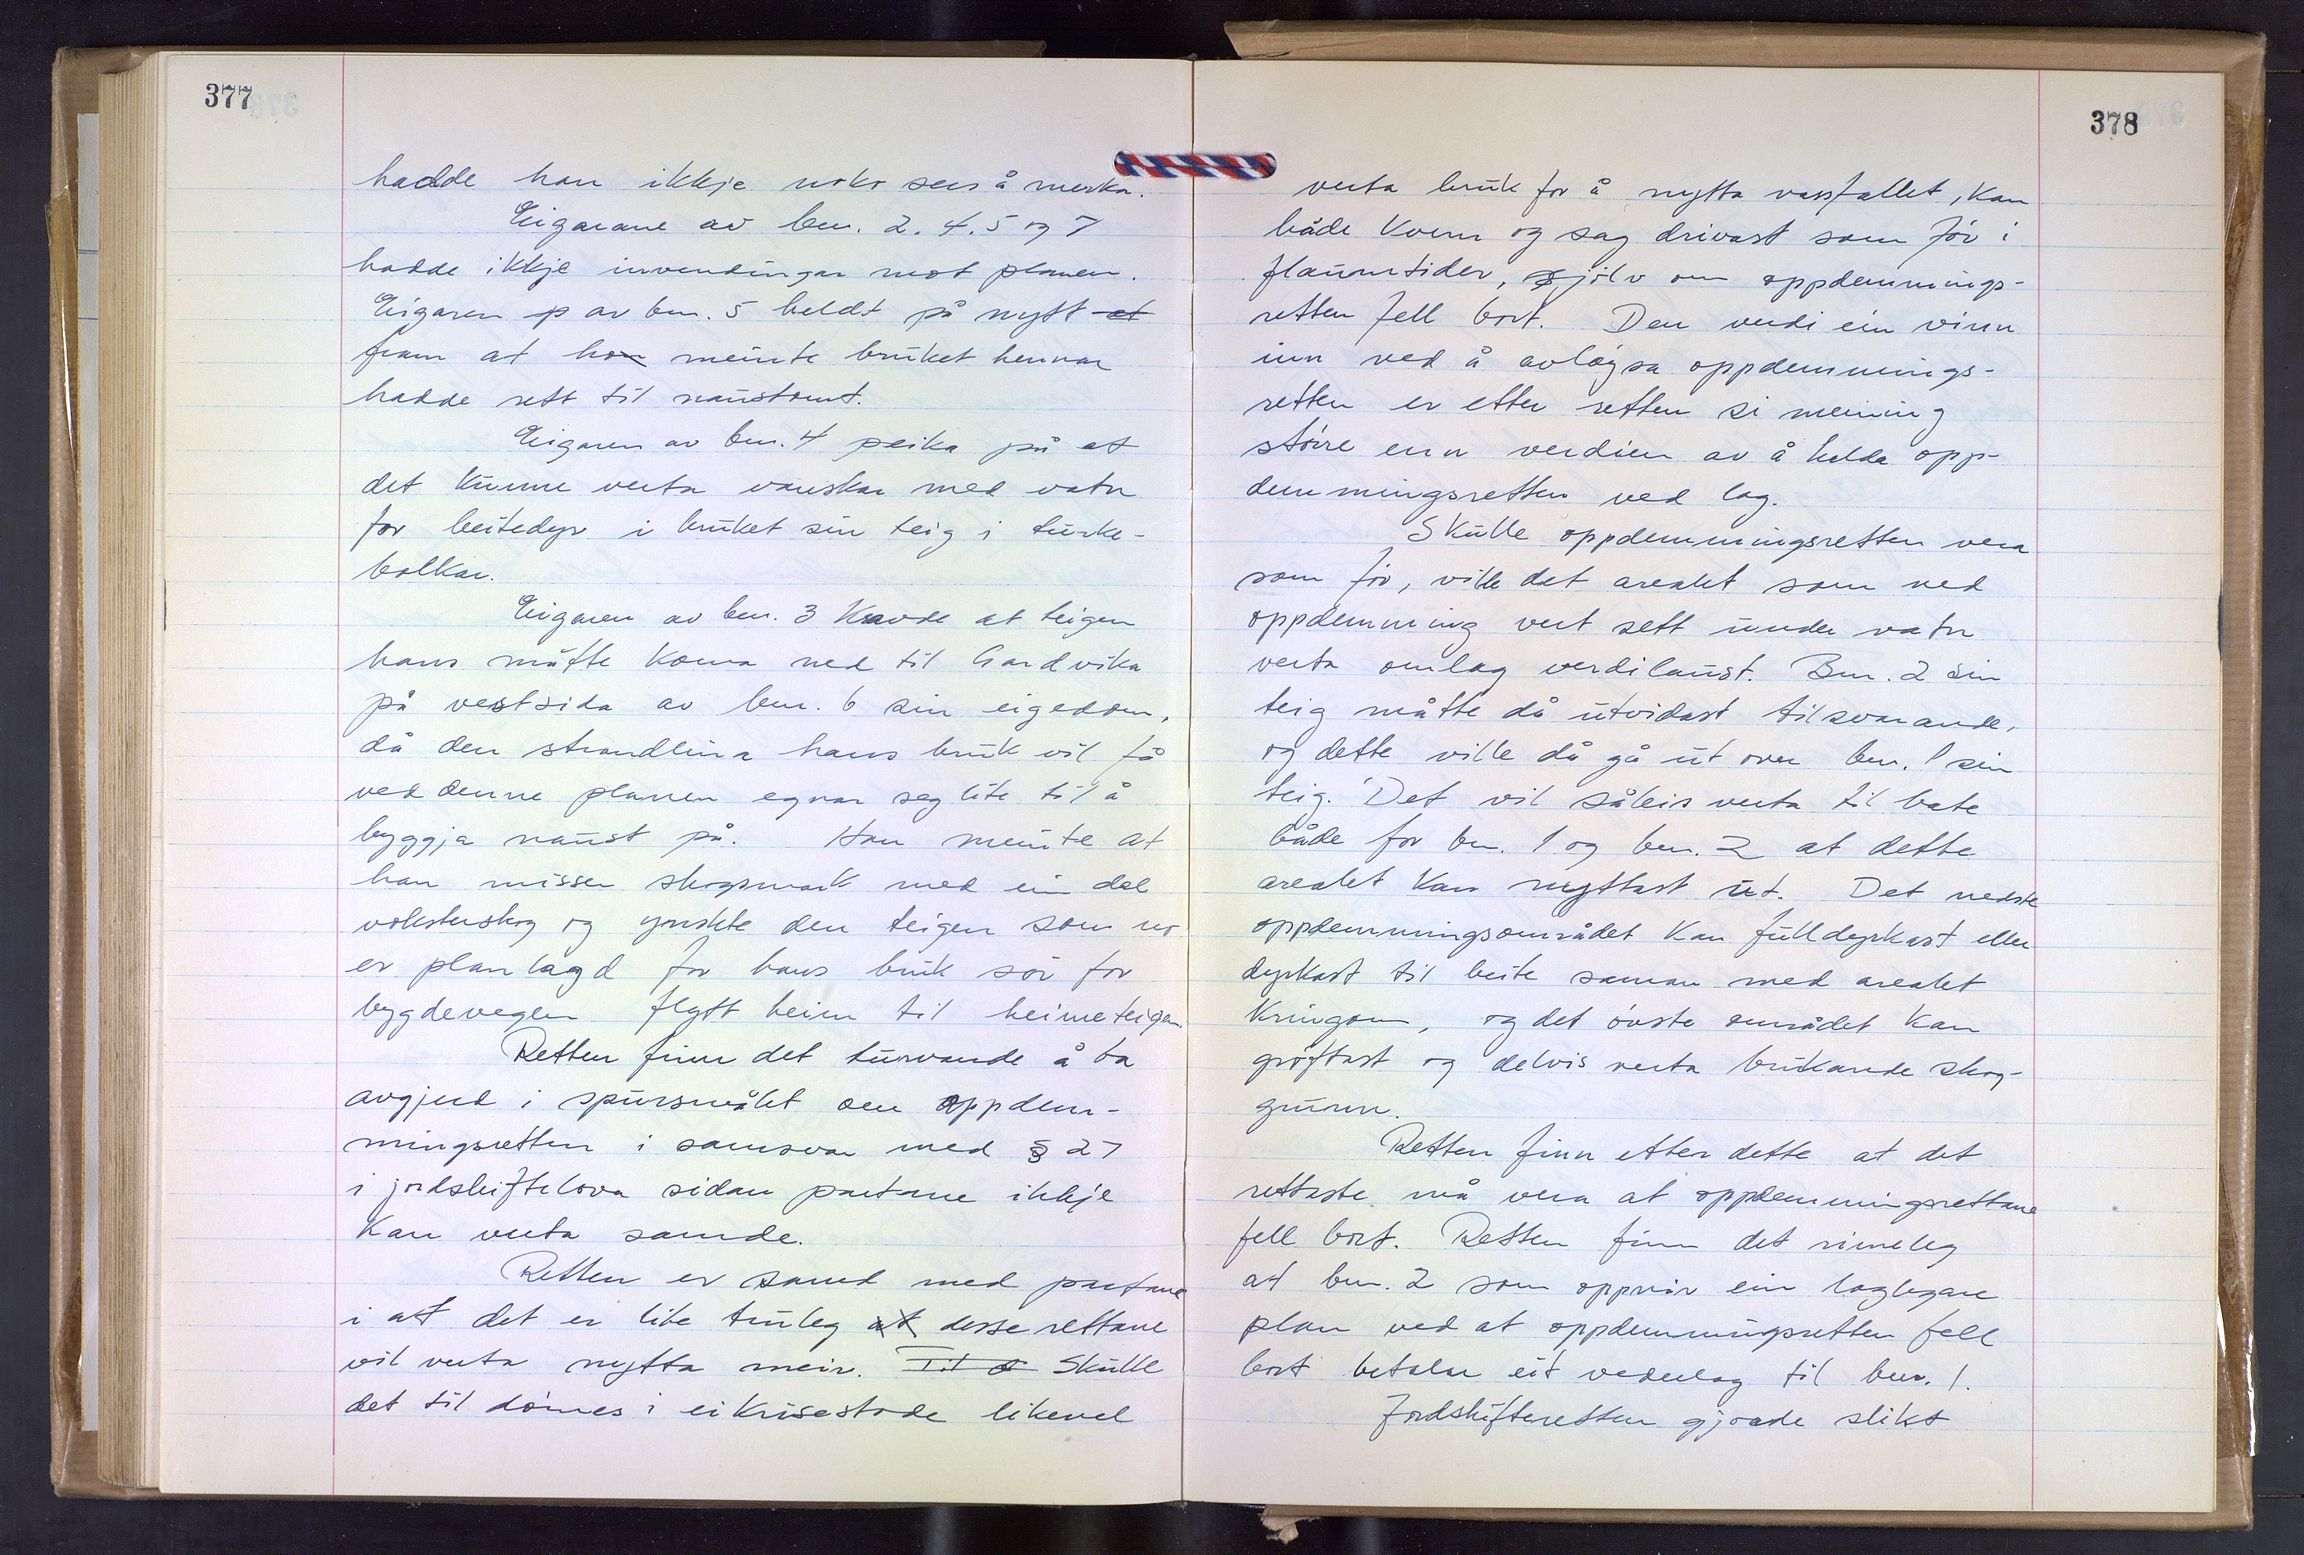 377
hadde han ikkje noko sers å merka.
Eigarane av bnr. 2. 4. 5 og 7
hadde ikkje invendingar mot planen.
Eigaren p av bnr. 5 heldt på nytt at
fram at hon meinte bruket hennar
hadde rett til naustomt.
Eigaren av bnr. 4 peika på at
det kunne verta vanskar med vatn
for beitedyr i bruket sin teig i turke-
bolkar.
Eigaren av bnr. 3 kravde at teigen
hans måtte koma ned til Gardvika
på vestsida av bnr. 6 sin eigedom,
då den strandlina hans bruk vil få
ved denne planen egnar seg lite til å
byggja naust på. Han meinte at
han misser skogsmark med ein del
voksterskog og ynskte den teigen som no
er planlagd for hans bruk sör for
bygdevegen flytt heim til heimeteigen.
Retten finn det turvande å ta
avgjerd i spursmålet om oppdem-
mingsretten i samsvar med § 27
i jordskiftelova sidan partane ikkje
kan verta samde.
Retten er samd med partane
i att det er lite truleg at desse rettane
vil verta nytta meir. Til d Skulle
det til dömes i ei krisestode likevel
378
verta bruk for å nytta vassfallet, kan
både kvern og sag drivast som för i
flaumtider, sjölv om oppdemmings-
retten fell bort. Den verdi ein vinn
inn ved å avlöysa oppdemmings-
retten er etter retten si meining
större enn verdien av å helda opp-
demmingsretten ved lag.
Skulle oppdemmingsretten vera
som för, ville det arealet som ved
oppdemming vert sett under vatn
verta omlag verdilaust. Bnr. 2 sin
teig måtte då utvidast tilsvarande,
og dette ville då gå ut over bnr. 1 sin
teig. Det vil såleis verta til bate
både for bnr. 1 og bnr. 2 at dette
arealet kan nyttast ut. Det nedste
oppdemmingsområdet kan fulldyrkast eller
dyrkast til beite saman med arealet
kringom, og det övste området kan
gröftast og delvis verta brukande skog-
grunn.
Retten finn etter dette at det
rettaste må vera at oppdemmingsrettane
fell bort. Retten finn det rimeleg
at bnr. 2 som oppnår ein laglegare
plan ved at oppdemmingsretten fell
bort betaler eit vederlag til bnr. 1.
Jordskifteretten gjorde slikt